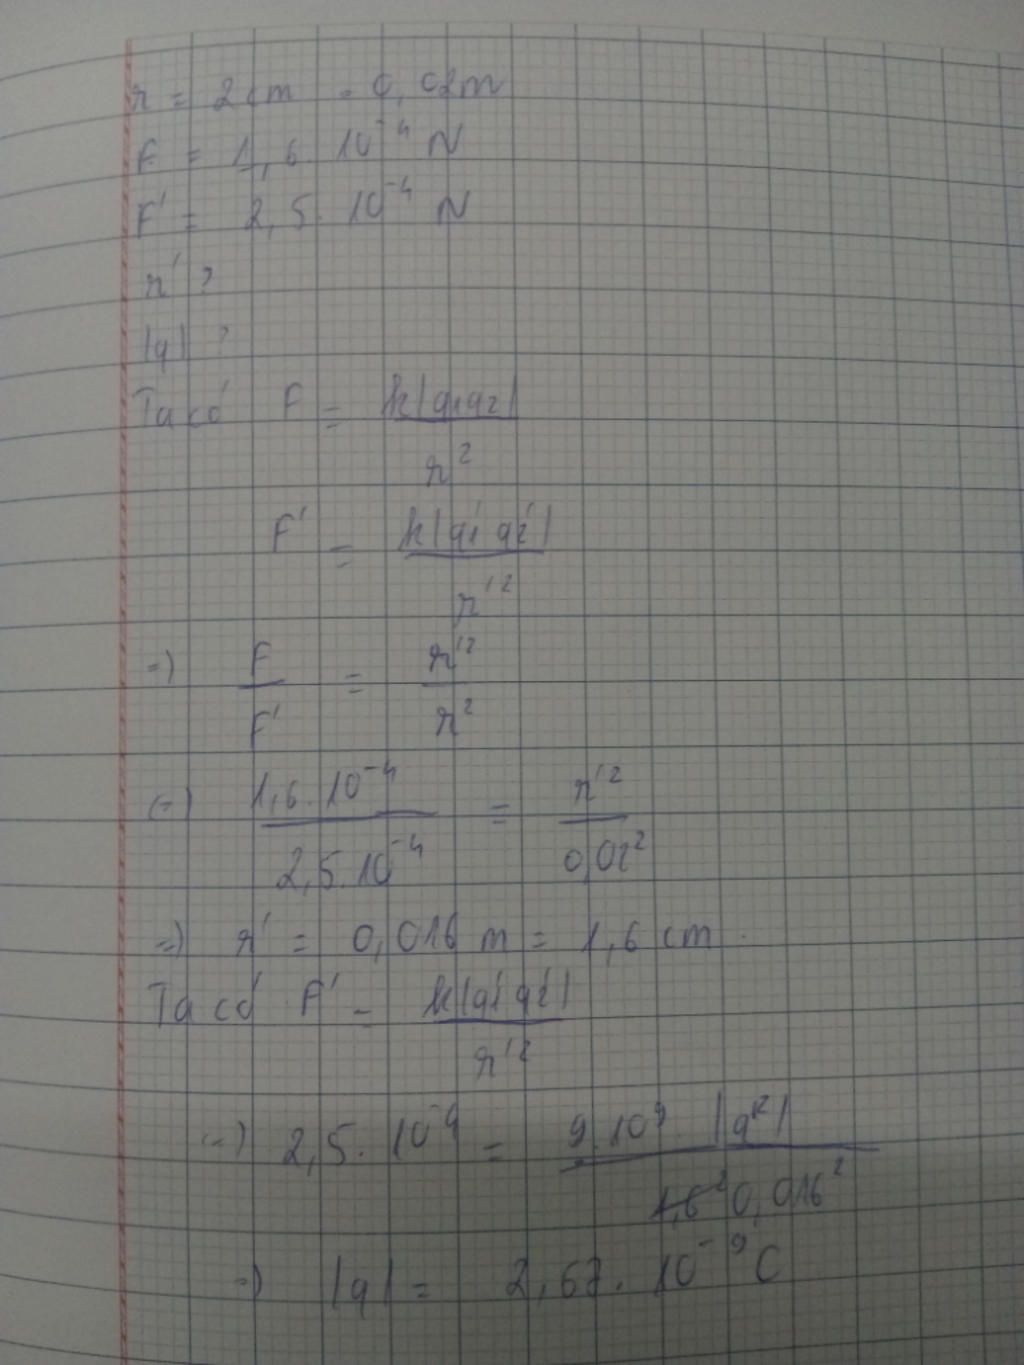 r = 2cm = 0,02m
F = 1,6 10⁻⁴ N
F' = 2,5. 10⁻⁴ N
r' ?
|q| ?
Ta có F = k|q₁q₂| / r²
F' = k|q₁' q₂'| / r'²
=) F / F' = r'² / r²
(=) 1,6.10⁻⁴ / 2,5.10⁻⁴ = r'² / 0,02²
=) r' = 0,016 m = 1,6 cm.
Ta có F' = k|q₁' q₂'| / r'²
(=) 2,5. 10⁻⁴ = 9.10⁹ |q²| / 0,016²
=) |q| = 2,67. 10⁻⁹ C